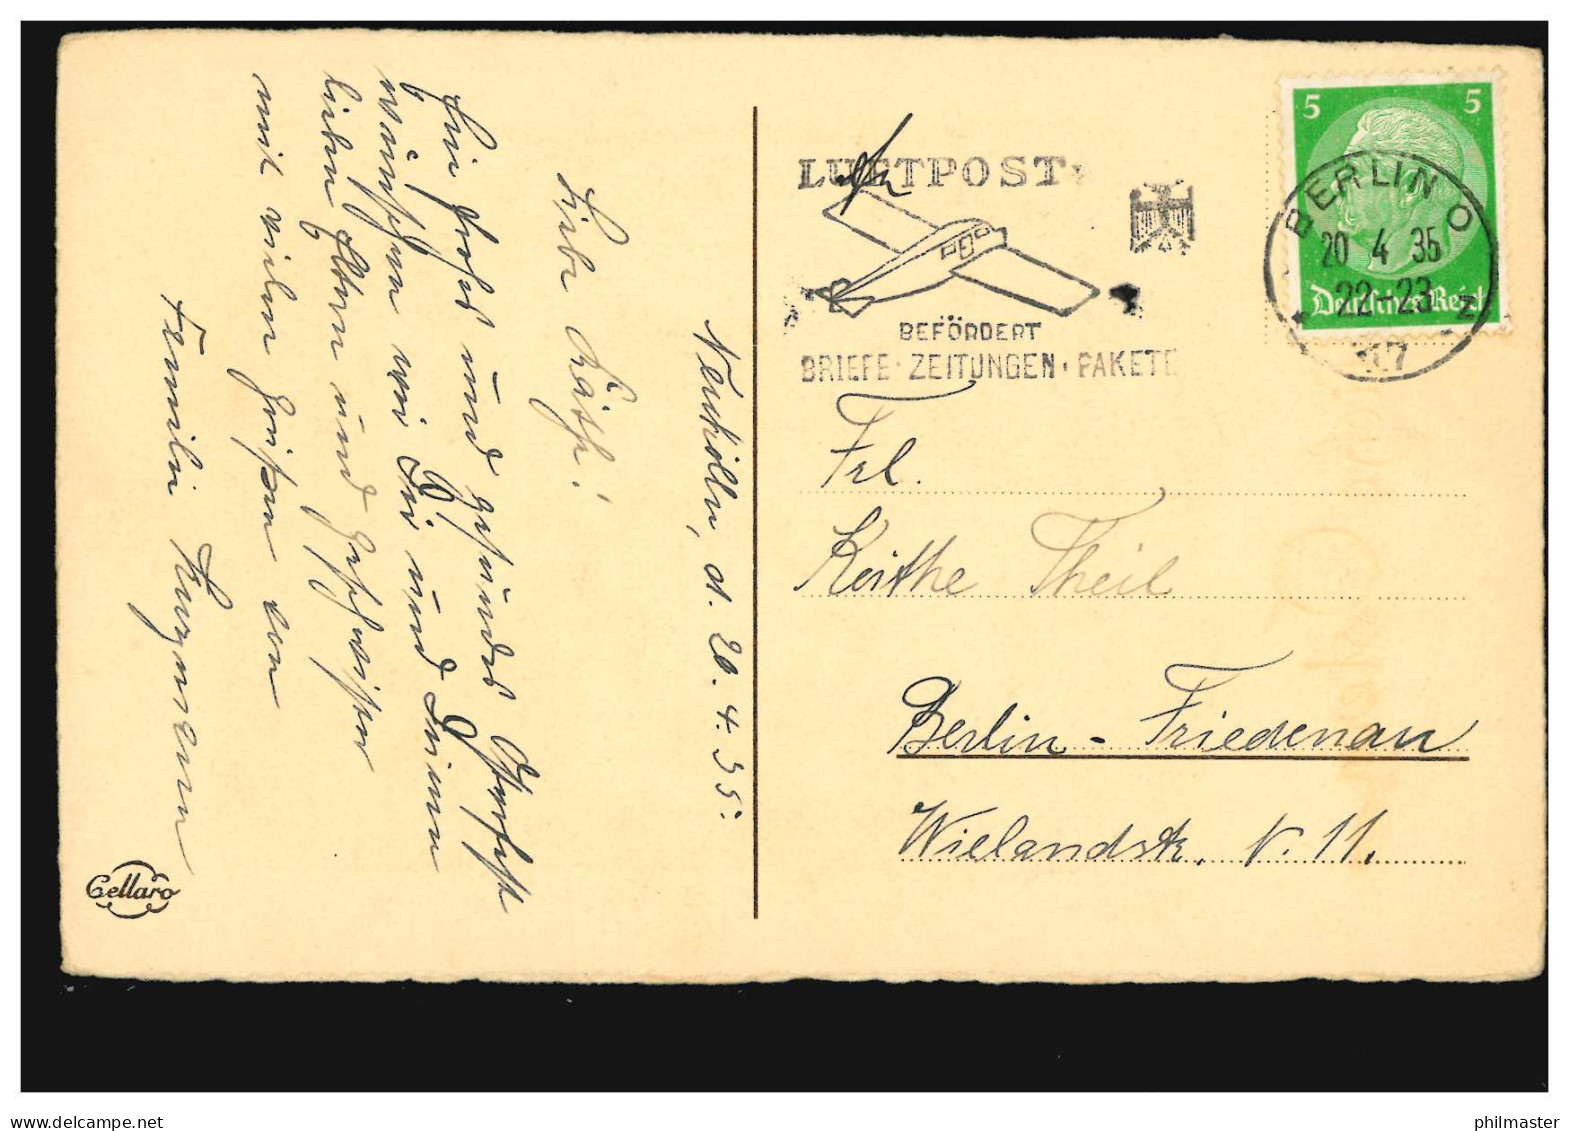 Neukölln, d. 20.4.35.
Liebe Käthe!
Ein frohes und gesundes Osterfest
wünschen wir Dir und Deinen
lieben Eltern und Geschwister
mit vielen Grüßen von
Familie
Cellaro
LUFTPOST
BEFÖRDERT
BRIEFE · ZEITUNGEN · PAKETE
5 5
Deutsches Reich
BERLIN O
20 4 35
22-23
17
Frl.
Käthe Theil
Berlin-Friedenau
Wielandstr. N. 11.
philmaster
www.delcampe.net